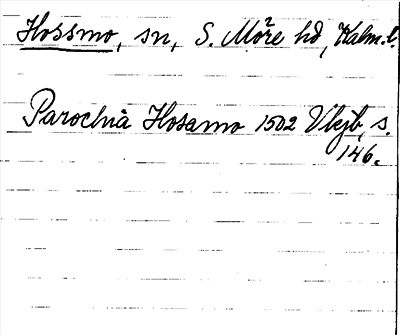 Hossmo, sn, S. Möre hd, Kalm. l.
Parochia Hosamo 1502 Vkjb, s.
146.